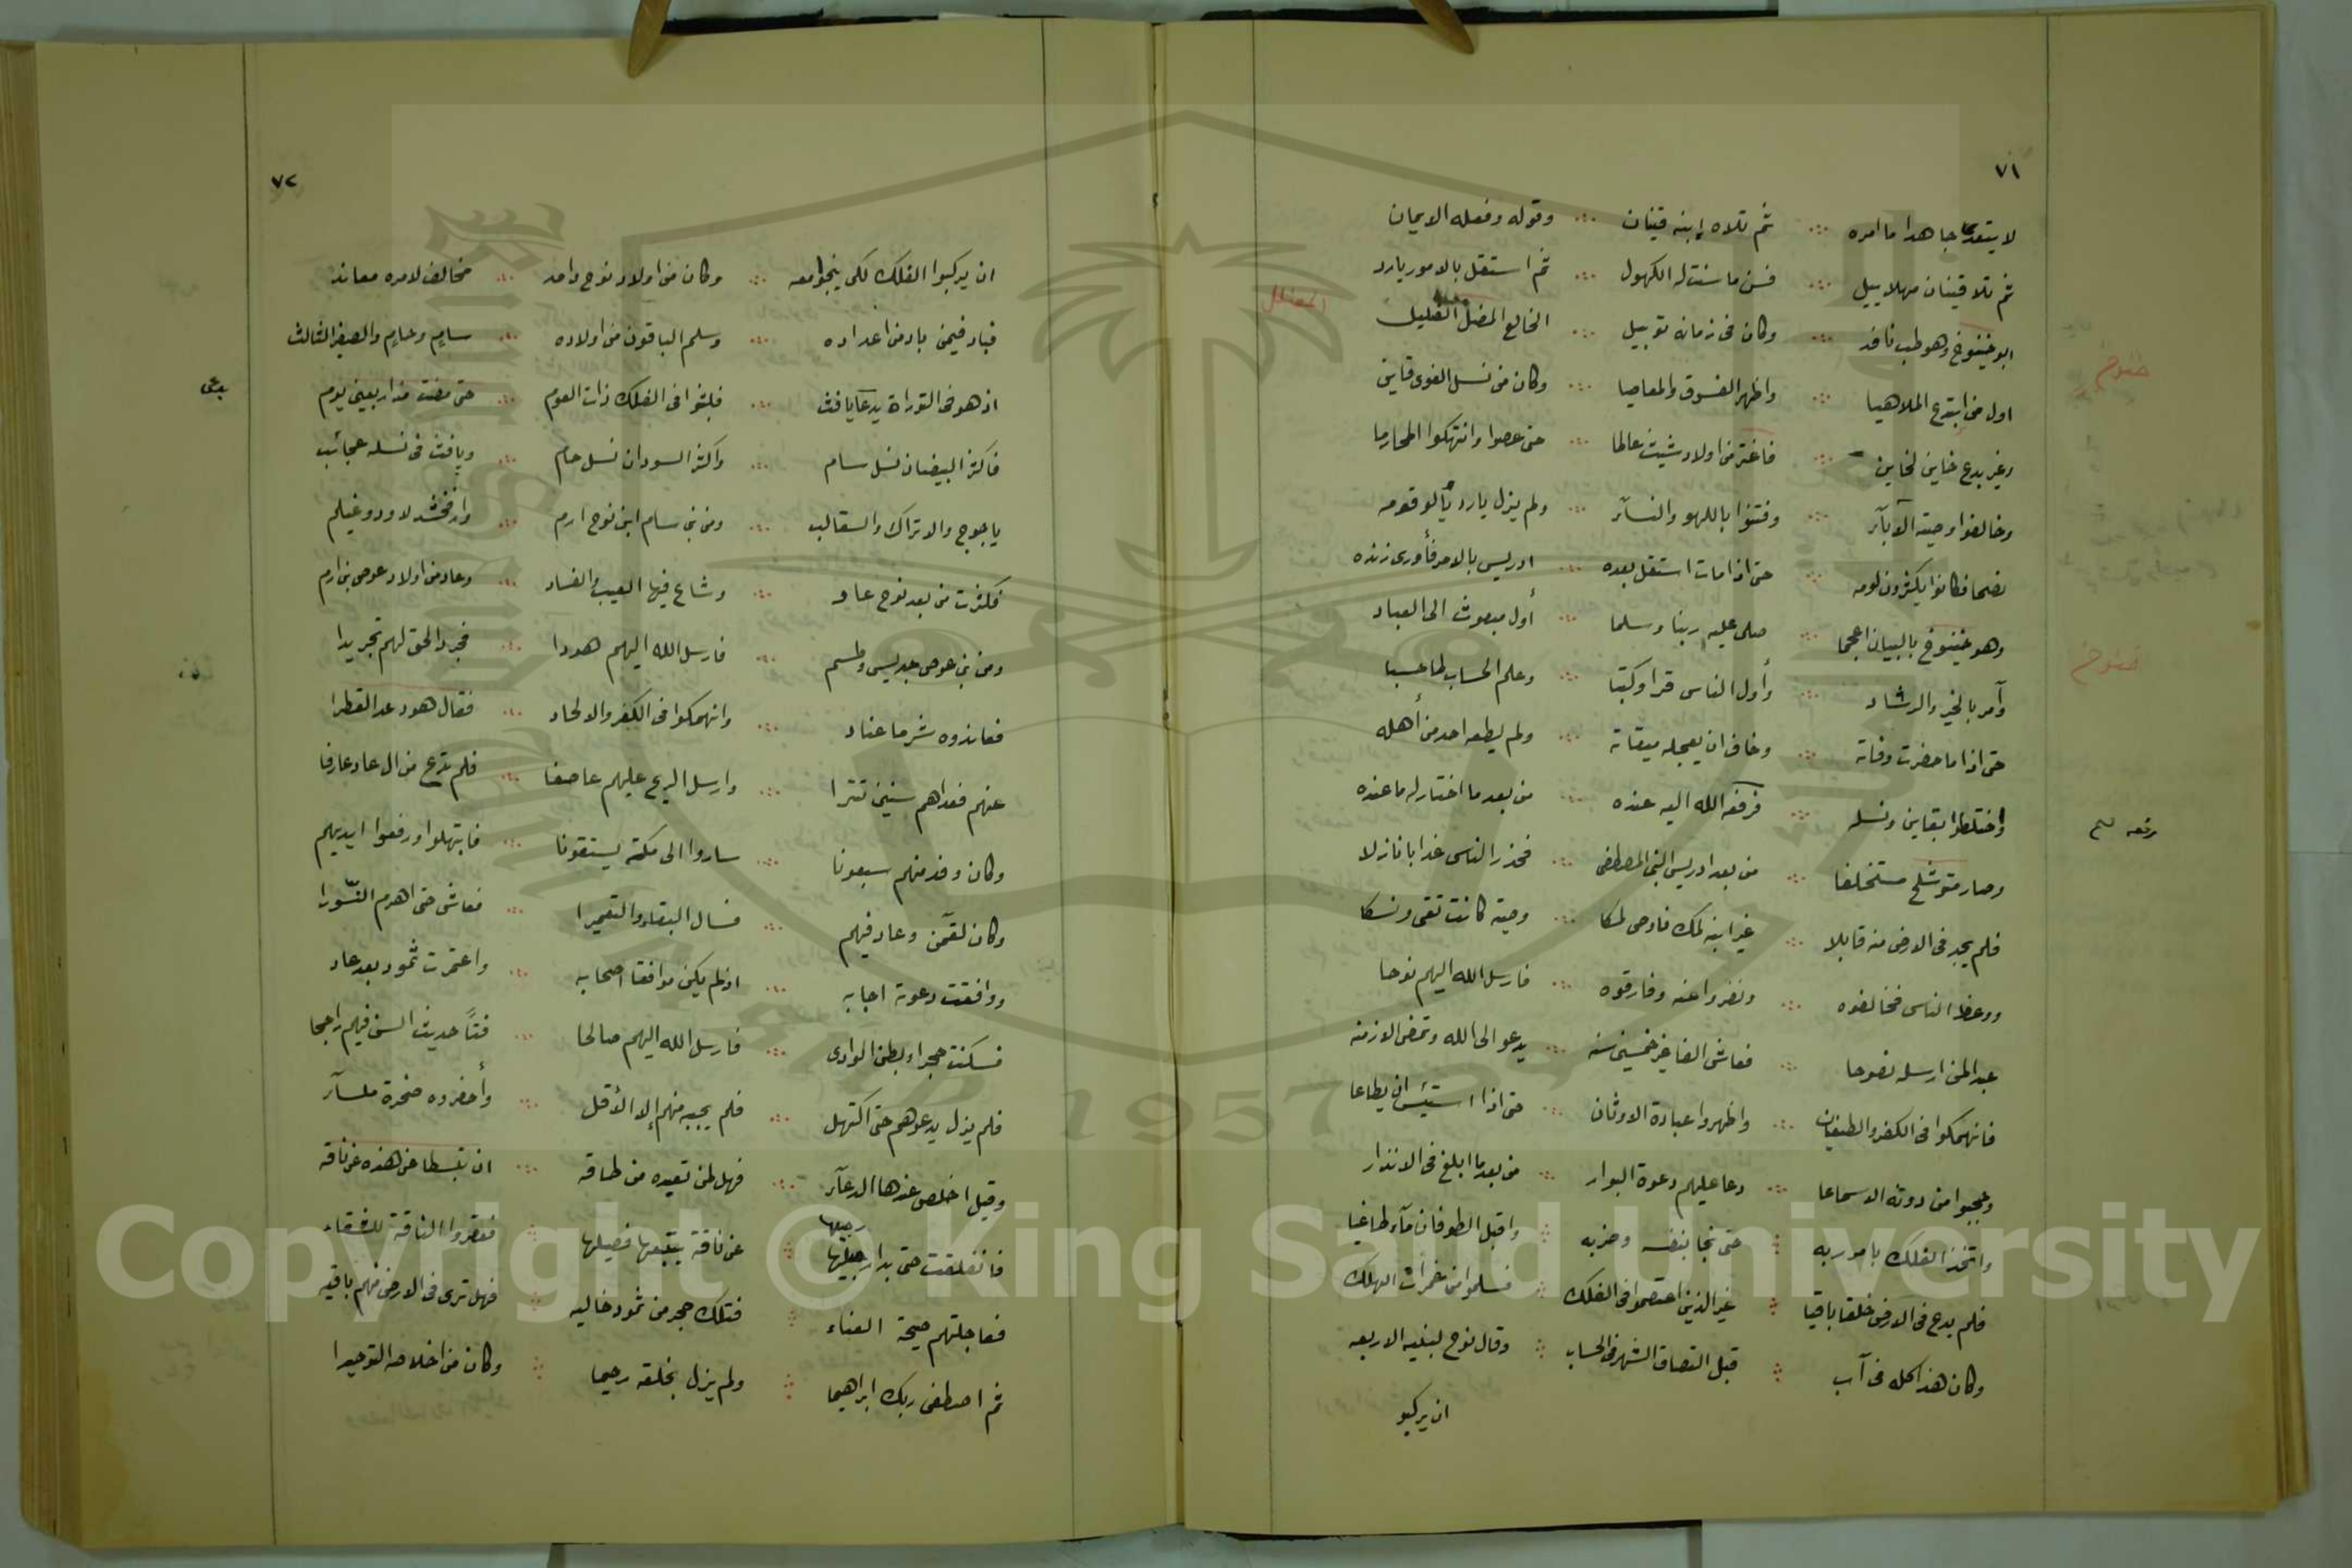 ٧١
لا يتعدى جاهدا ما امره ∴ ثم تلاه إبنه قينان ∴ وقوله وفعله الايمان
ثم تلا قينان مهلاييل ∴ فسن ما سنت له الكهول ∴ ثم استقل بالامور يارد
ابو خنوخ وهو طب ناقد ∴ وكان فى زمانه توبيل ∴ الخالع المضل الضليل
المضلل
خنوخ
اول من ابتدع الملاهيا ∴ واظهر الفسوق والمعاصيا ∴ وكان من نسل الغوى قاين
وغير بدع خاين لخاين ∴ فاغتر من اولاد شيث عالما ∴ حتى عصوا وانتهكوا المحارما
وخالفوا وصية الآبآء ∴ وفتنوا باللهو والنسآء ∴ ولم يزل يارد يألو قومه
نصحا فكانوا يكثرون لومه ∴ حتى اذا مات استقل بعده ∴ ادريس بالامر فأورى زنده
وهو خنوخ بالبيان اعجما ∴ صلى عليه ربنا وسلما ∴ أول مبعوث الى العباد
خنوخ
وآمر بالخير والرشاد ∴ وأول الناس قرا وكتبا ∴ وعلم الحساب لما حسبا
حتى اذا ما حضرت وفاته ∴ وخاف ان يعجله ميقاته ∴ ولم يطعه احد من أهله
واختلطوا بقاين ونسله ∴ فرفع الله اليه عنده ∴ من بعد ما اختار له ما عنده
وصار متوشلح مستخلفا ∴ من بعد ادريس النبى المصطفى ∴ فحذر الناس عذابا نازلا
فلم يجد فى الارض منه قابلا ∴ غير ابنه لمك فاوصى لمكا ∴ وصية كانت تقى ونسكا
ووعظ الناس فخالفوه ∴ ونفروا عنه وفارقوه ∴ فارسل الله اليهم نوحا
عبدا لمن ارسله نصوحا ∴ فعاش الفا غير خمسين سنه ∴ يدعو الى الله وتمضى الازمنه
فانهمكوا فى الكفر والطغيان ∴ واظهروا عبادة الاوثان ∴ حتى اذا استيئس ان يطاعا
وحجبوا من دونه الاسماعا ∴ دعا عليهم دعوة البوار ∴ من بعد ما ابلغ فى الانذار
واتخذ الفلك بامر ربه ∴ حتى نجا بنفسه وحزبه ∴ واقبل الطوفان مآء طاغيا
فلم يدع فى الارض خلقا باقيا ∴ غير الذين اعتصموا فى الفلك ∴ فسلموا من غمرات الهلك
وكان هذا كله فى آب ∴ قبل انتصاف الشهر فى الحساب ∴ وقال نوح لبنيه الاربعه
ان يركبو
٧٢
ان يركبوا الفلك لكى ينجوا معه ∴ وكان من اولاد نوح واحد ∴ مخالف لامره معاند
فباد فيمن باد من اعداده ∴ وسلم الباقون من اولاده ∴ سام وحام والصغير الثالث
اذ هو فى التوراة يدعا يافث ∴ فلبثوا فى الفلك ذات العوم ∴ حتى مضت مذ اربعين يوم
يدعى
فاكثر البيضان نسل سام ∴ واكثر السودان نسل حام ∴ ويافث فى نسله عجائب
ياجوج والاتراك والسقالب ∴ ومن بنى سام ابن نوح ارم ∴ وارفخشد لاود وغيلم
فكثرت من بعد نوح عاد ∴ وشاع فيها العيب والفساد ∴ وعاد من اولاد عوص بن ارم
ومن بنى عوص جديس وطسم ∴ فارسل الله اليهم هودا ∴ فجرد الحق لهم تجريدا
فعاندوه شر ما عناد ∴ وانهمكوا فى الكفر والالحاد ∴ فقال هود عد القطرا
عنهم فعداهم سنين تترا ∴ وارسل الريح عليهم عاصفا ∴ فلم تدع من ال عاد عارفا
وكان وفد منهم سبعونا ∴ ساروا الى مكة يستقونا ∴ فابتهلوا ورفعوا ايديهم
وكان لقمن وعاد فيهم ∴ فسال البقاء والتعميرا ∴ فعاش حتى اهرم النسورا
ووافقت دعوته اجابه ∴ اذ لم يكن موافقا اصحابه ∴ واعتمرت ثمود بعد عاد
فسكنت حجرا وبطن الوادى ∴ فارسل الله اليهم صالحا ∴ فتًا حديث السن فيهم راجحا
فلم يزل يدعوهم حتى اكتهل ∴ فلم يجبه منهم إلا الأقل ∴ وأحضروه صخرة ملسآء
وقيل اخلص عندها الدعآء ∴ فهل لمن تعبده من طاقه ∴ ان تبسطا عن هذه عن ناقه
فانفلقت حتى بدا رجيلها ∴ عن ناقة يتبعها فصيلها ∴ فعقروا الناقة للشقاء
فعاجلتهم صيحة الفناء ∴ فتلك حجر من ثمود خاليه ∴ فهل ترى فى الارض منهم باقيه
ثم اصطفى ربك ابراهيما ∴ ولم يزل بخلقه رحيما ∴ وكان من اخلاصه التوحيدا
1957
Copyright © King Saud University